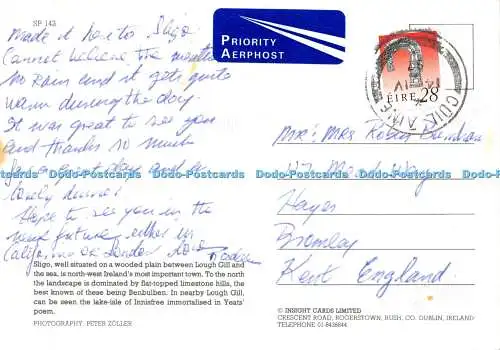 SP 143
made it here to Sligo
Cannot believe the weather
no rain and it gets quite
warm during the day.
It was great to see you
and thanks so much
for a great day and a
lovely dinner!
Hope to see you in the
near future either in
California or London Love
PRIORITY
AERPHOST
ÉIRE 28
Mr & Mrs Robin
Mead Way
Hayes
Bromley
Kent England.
Dodo-Postcards Dodo-Postcards Dodo-Postcards Dodo-Postcards Dodo-Postcards
Sligo, well situated on a wooded plain between Lough Gill and
the sea, is north-west Ireland's most important town. To the north
the landscape is dominated by flat-topped limestone hills, the
best known of these being Benbulben. In nearby Lough Gill,
can be seen the lake-isle of Innisfree immortalised in Yeats'
poem.
PHOTOGRAPHY: PETER ZÖLLER
© INSIGHT CARDS LIMITED
CRESCENT ROAD, ROGERSTOWN, RUSH, CO. DUBLIN, IRELAND
TELEPHONE 01-8436844